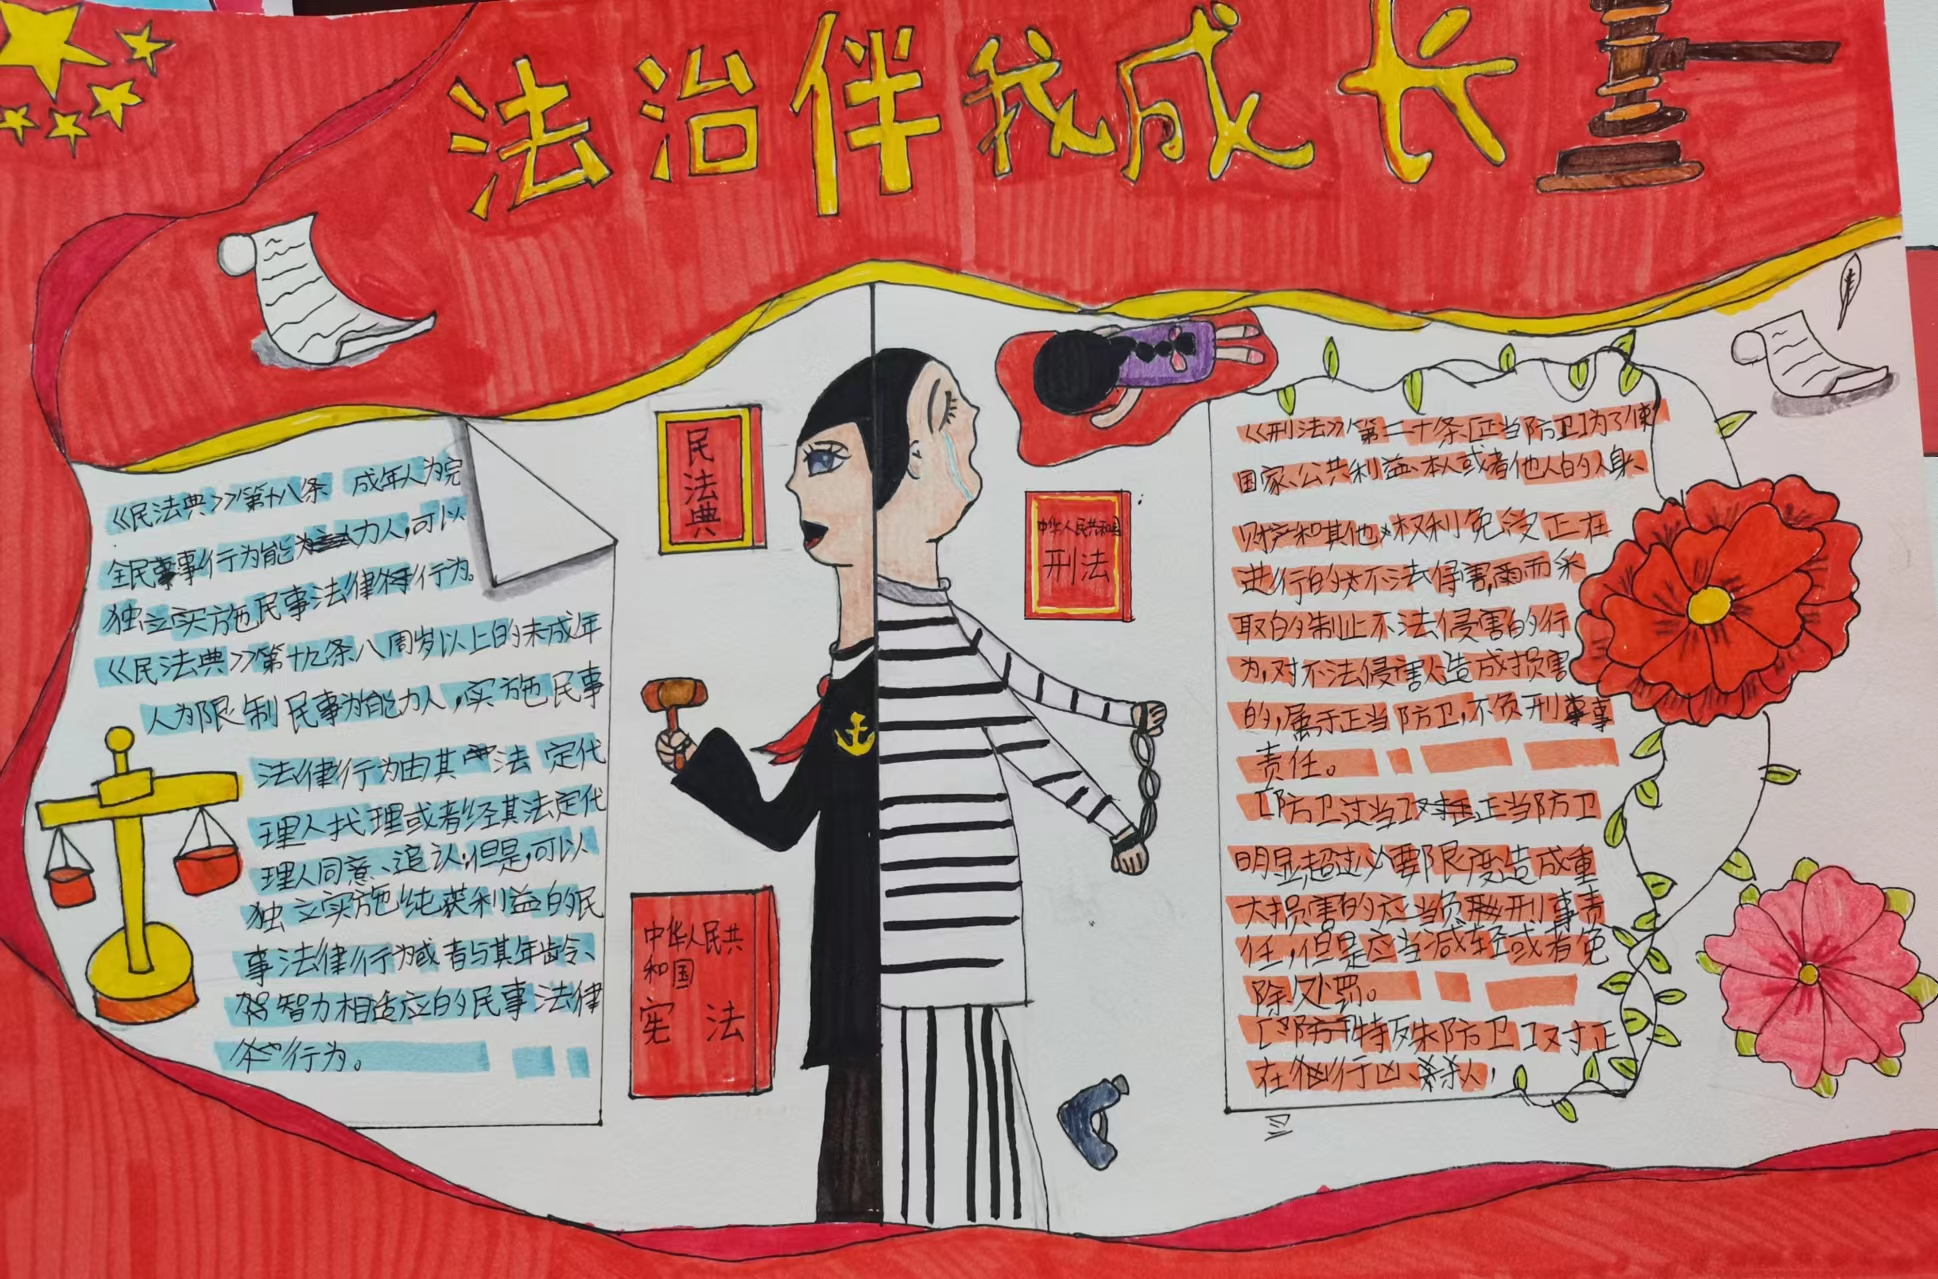 法治伴我成长
《民法典》第十八条 成年人为完
全民事行为能力人,可以
独立实施民事法律行为。
《民法典》第十九条八周岁以上的未成年
人为限制民事为能力人,实施民事
法律行为由其法定代
理人找理或者经其法定代
理人同意、追认,但是,可以
独立实施纯获利益的民
事法律行为或者与其年龄、
智力相适应的民事法律
行为。
民法典
中华人民共
和国
宪法
中华人民共和国
刑法
《刑法》第二十条[正当防卫]为了使
国家、公共利益、本人或者他人的人身、
财产和其他权利免受正在
进行的不法侵害,而采
取的制止不法侵害的行
为,对不法侵害人造成损害
的,属于正当防卫,不负刑事
责任。
[防卫过当]对正当防卫
明显超过必要限度造成重
大损害的应当负刑事责
任,但是应当减轻或者免
除处罚。
[特殊防卫]对正
在行凶、杀人,